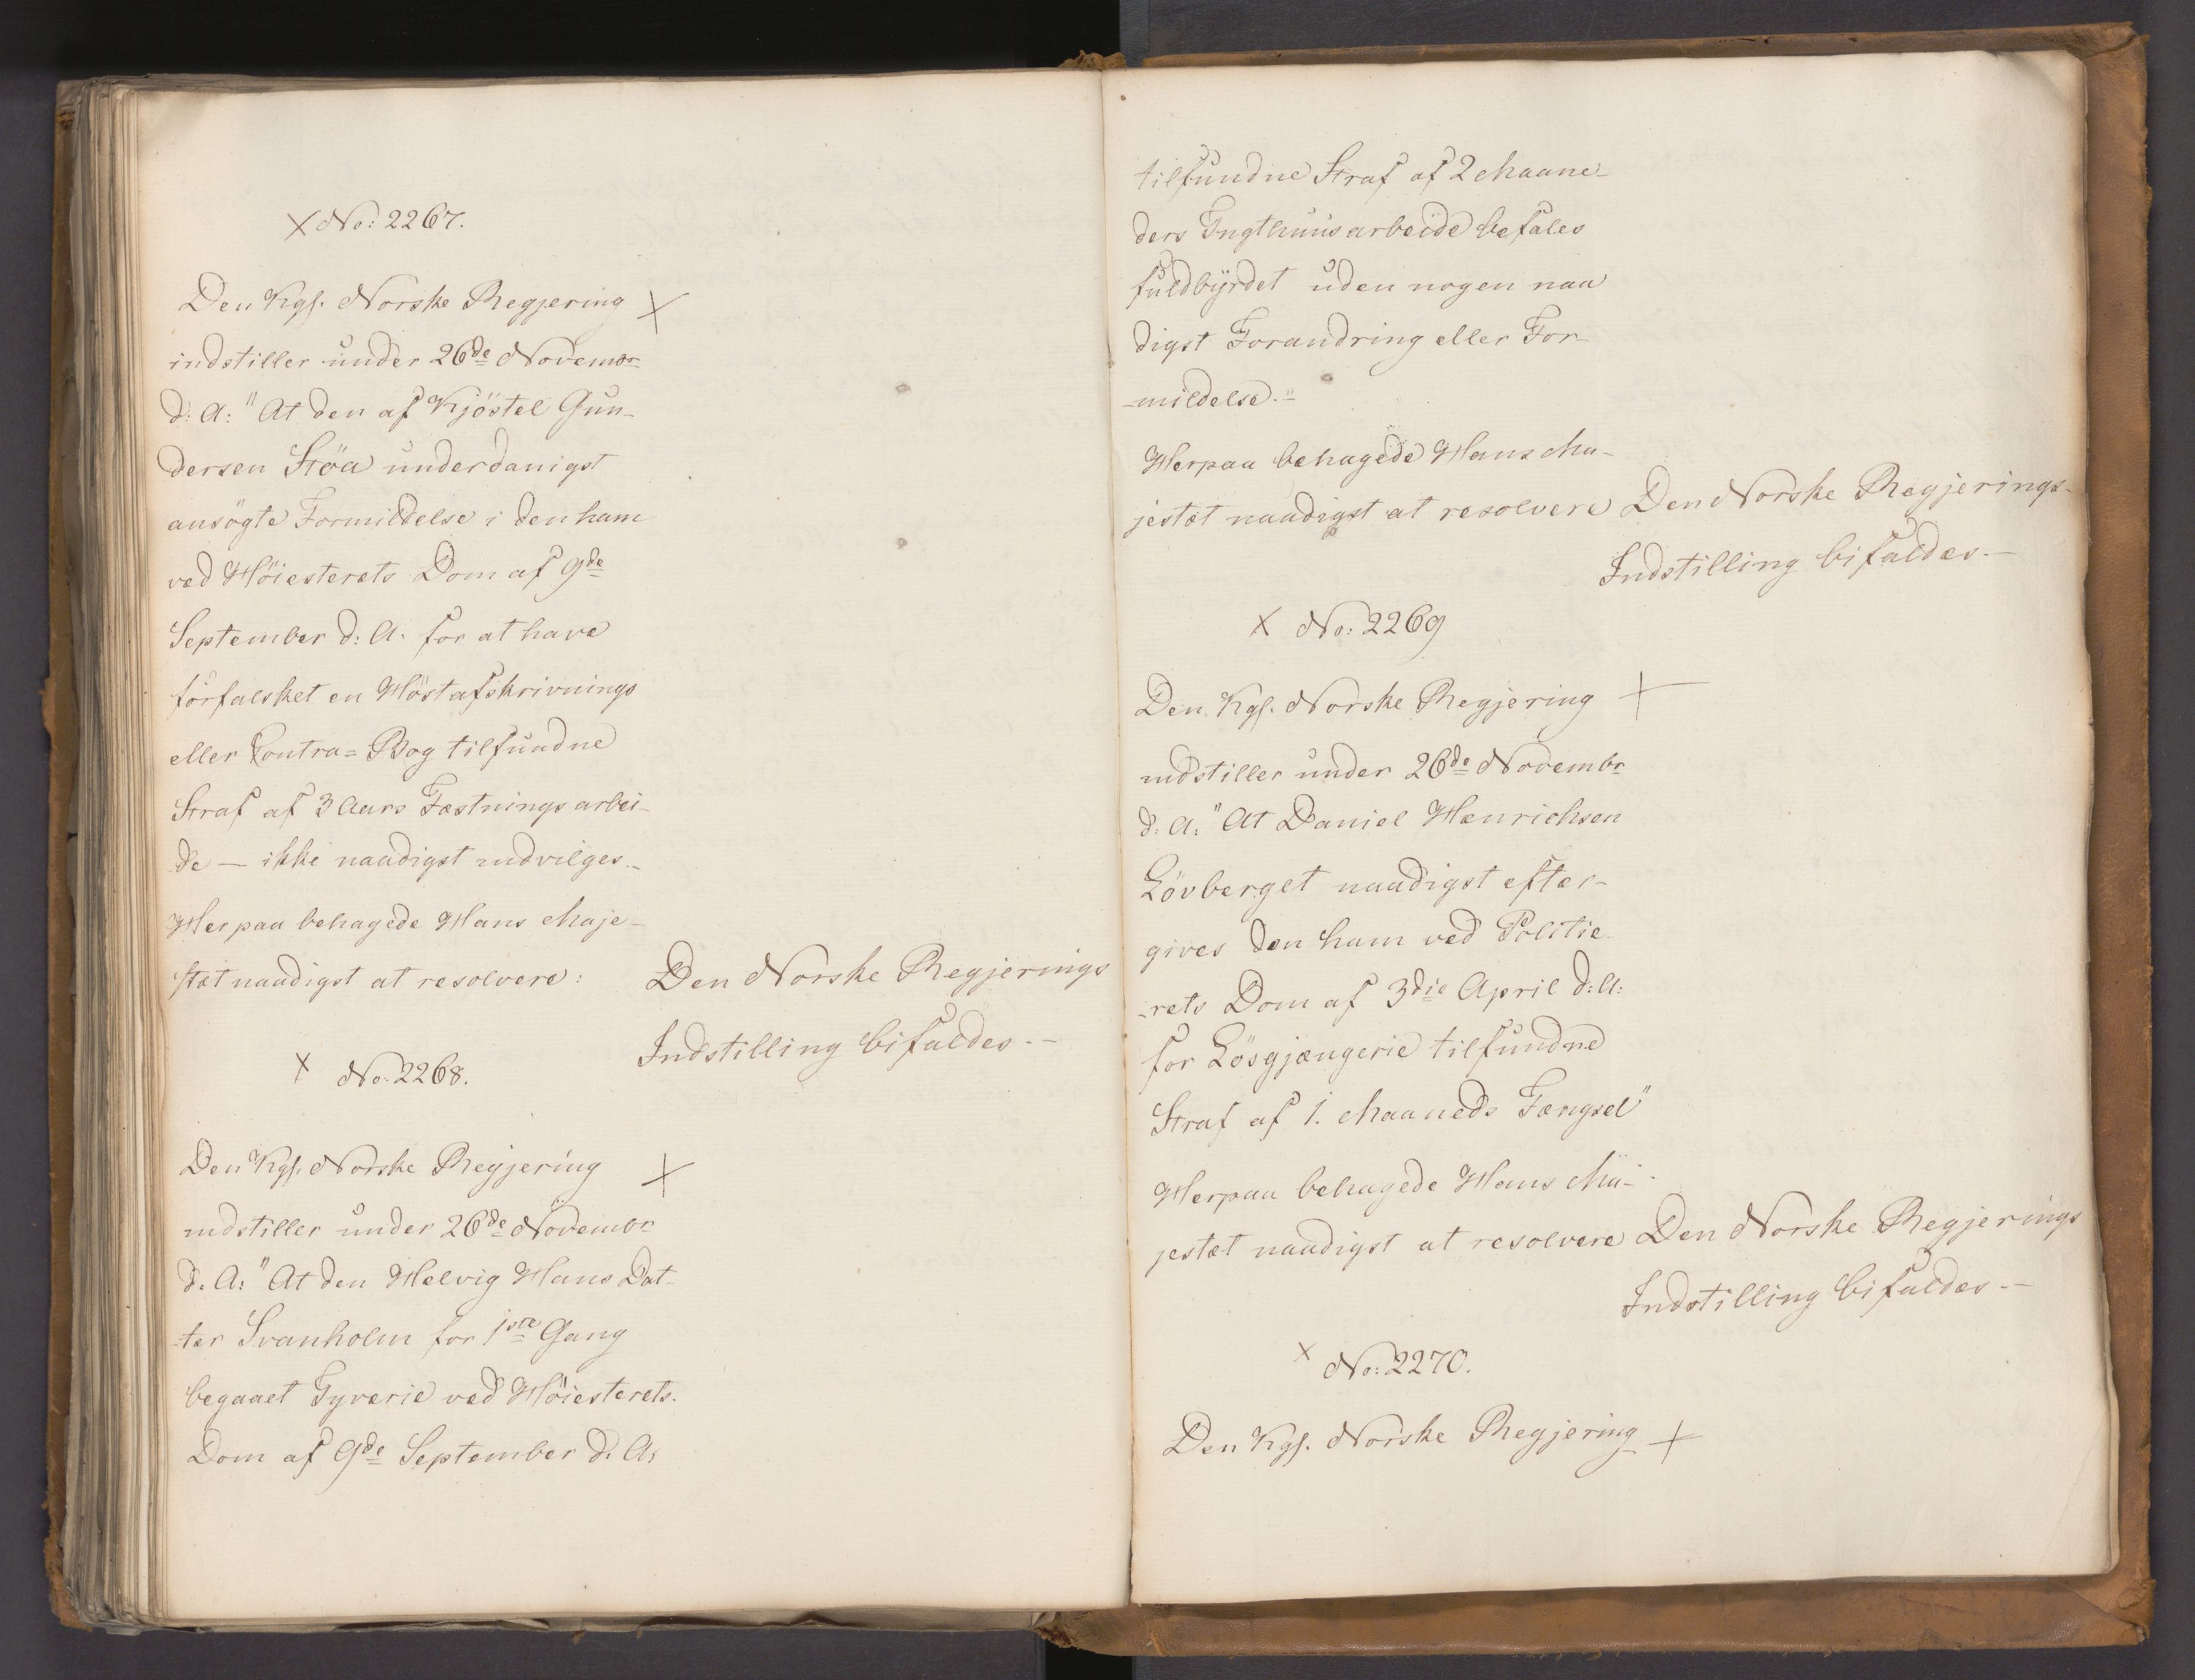 X No: 2267.
Den Kgs. Norske Regjering X
indstiller under 26de Novembr
d: A: "At den af Kjöstel Gun-
dersen Stöa underdanigst
ansögte Formildelse i den ham
ved Höiesterets Dom af 9de
September d: A. for at have
forfalsket en Höstafskrivnings
eller Contra=Bog tilfundne
Straf af 3 Aars Fæstningsarbei-
de — ikke naadigst indvilges.-
Herpaa behagede Hans Maje-
stæt naadigst at resolvere: Den Norske Regjerings
Indstilling bifaldes.-
X No: 2268.
Den Kgs. Norske Regjering X
indstiller under 26de Novembr
d. A: "At den Helvig Hans Dat-
-ter Svanholm for 1ste Gang
begaaet Tyverie ved Höiesterets.
Dom af 9de September d. A.
tilfundne Straf af 2 Maane-
ders Tugthuusarbeide befales
fuldbÿrdet uden nogen naa
digst Forandring eller For-
-mildelse."
Herpaa behagede Hans Ma-
jestæt naadigst at resolvere Den Norske Regjerings-
Indstilling bifaldes.-
X No: 2269
Den Kgs. Norske Regjering X
indstiller under 26de Novembr
d: A: "At Daniel Henrichsen
Lövberget naadigst efter-
gives den ham ved Politie-
-rets Dom af 3die April d: A:
for Lösgjængerie tilfundne
Straf af 1. Maaneds Fængsel"
Herpaa behagede Hans Ma-
jestæt naadigst at resolvere Den Norske Regjerings
Indstilling bifaldes.-
X No: 2270.
Den Kgs. Norske Regjering X